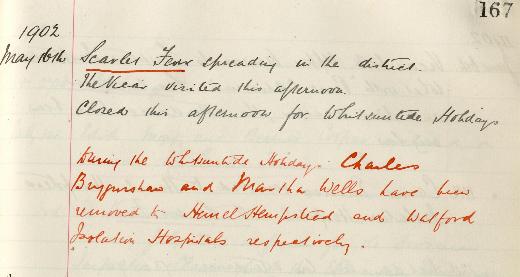 167
1902
May 16th Scarlet Fever spreading in the district.
The Vicar visited this afternoon.
Closed this afternoon for Whitsuntide Holidays
During the Whitsuntide Holidays Charles
and Martha Wells have been
removed to Hemel Hempstead and Watford
Isolation Hospitals respectively.